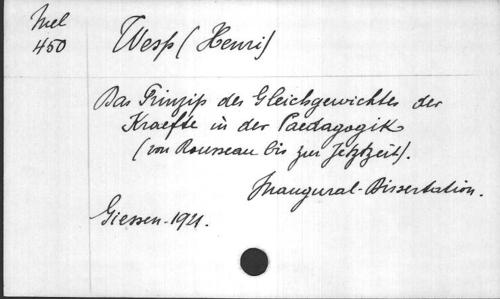 Mel
450
Wesp (Henri)
Das Prinzip des Gleichgewichtes der
Kraefte in der Paedagogik
(von Rousseau bis zur Jetztzeit).
Inaugural-Dissertation.
Giessen-1921.